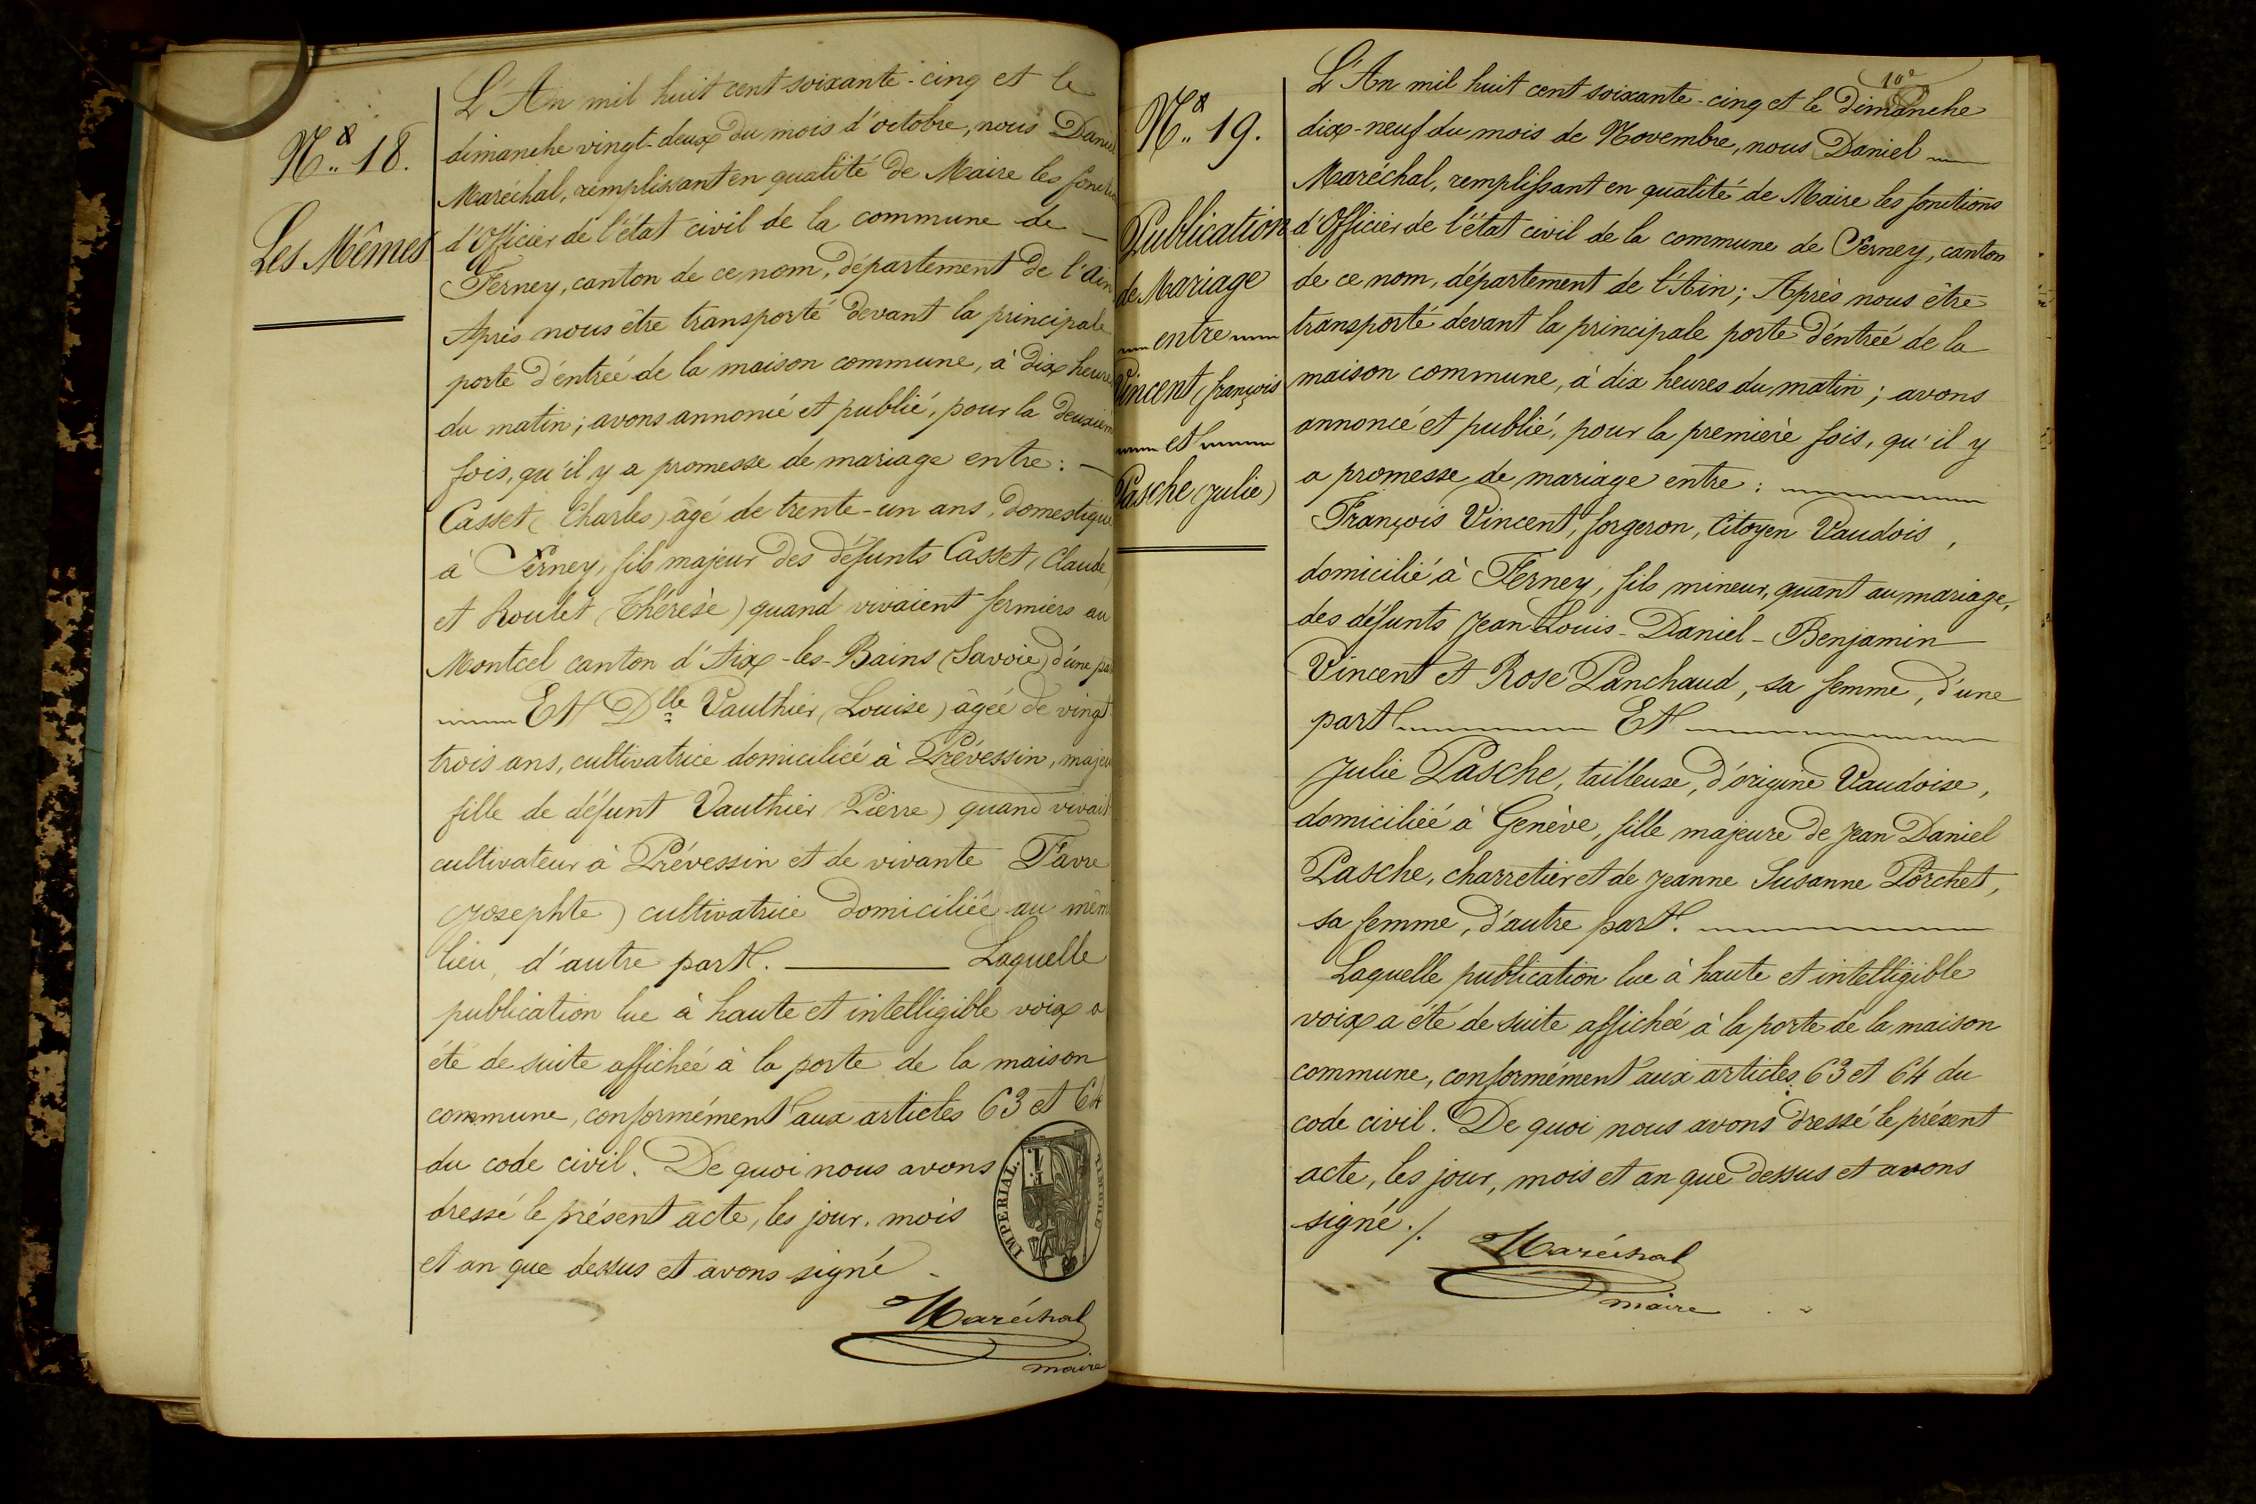 N° 18.
Les Mêmes
L'An mil huit cent soixante-cinq et le
dimanche vingt-deux du mois d'octobre, nous Daniel
Maréchal, remplissant en qualité de Maire les fonction
d'Officier de l'état civil de la commune de —
Ferney, canton de ce nom, département de l'Ain
Après nous être transporté devant la principale
porte d'entrée de la maison commune, à dix heures
du matin; avons annoncé et publié, pour la deuxièm
fois, qu'il y a promesse de mariage entre: —
Casset (Charles) âgé de trente-un ans, domestique
à Ferney, fils majeur des défunts Casset (Claude)
et Roulet (Thérèse) quand vivaient fermiers au
Montcel canton d'Aix-les-Bains (Savoie) d'une pa
Et Dlle Vauthier (Louise) âgée de vingt
trois ans, cultivatrice domiciliée à Prévessin, majeu
fille de défunt Vauthier (Pierre) quand vivait
cultivateur à Prévessin et de vivante Favre
(Josephte) cultivatrice domiciliée au mêm
lieu, d'autre part. — Laquelle
publication lue à haute et intelligible voix a
été de suite affichée à la porte de la maison
commune, conformément aux articles 63 et 64
du code civil. De quoi nous avons
dressé le présent acte, les jour, mois
et an que dessus et avons signé.
TIMBRE IMPERIAL.
Maréchal
maire
10e
N° 19.
Publication
de Mariage
entre
Vincent (françois
et
Pasche (Julie)
L'An mil huit cent soixante-cinq et le dimanche
dix-neuf du mois de Novembre, nous Daniel
Maréchal, remplissant en qualité de Maire les fonctions
d'Officier de l'état civil de la commune de Ferney, canton
de ce nom, département de l'Ain; Après nous être
transporté devant la principale porte d'entrée de la
maison commune, à dix heures du matin; avons
annoncé et publié, pour la première fois, qu'il y
a promesse de mariage entre:
François Vincent, forgeron, Citoyen Vaudois,
domicilié à Ferney, fils mineur, quant au mariage,
des défunts Jean Louis-Daniel-Benjamin
Vincent et Rose Panchaud, sa femme, d'une
part Et
Julie Pasche, tailleuse, d'origine Vaudoise,
domiciliée à Genève, fille majeure de Jean Daniel
Pasche, charretier et de Jeanne Susanne Porchet,
sa femme, d'autre part.
Laquelle publication lue à haute et intelligible
voix a été de suite affichée à la porte de la maison
commune, conformément aux articles 63 et 64 du
code civil. De quoi nous avons dressé le présent
acte, les jour, mois et an que dessus et avons
signé ./.
Maréchal
maire